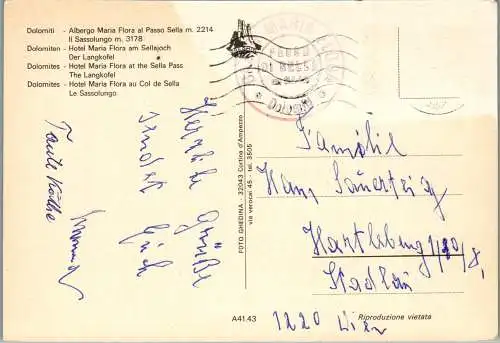 Dolomiti - Albergo Maria Flora al Passo Sella m. 2214
Il Sassolungo m. 3178
Dolomiten - Hotel Maria Flora am Sellajoch
Der Langkofel
Dolomites - Hotel Maria Flora at the Sella Pass
The Langkofel
Dolomites - Hotel Maria Flora au Col de Sella
Le Sassolungo
Herzliche Grüße
sendet Euch
Tante Käthe
FOTO GHEDINA - 32043 Cortina d'Ampezzo
via verocai 45 - tel. 3505
Familie
Hans Sauerzeig
Hartlebeng 1/30/8,
Stadlau
1220 Wien
A41.43
Riproduzione vietata